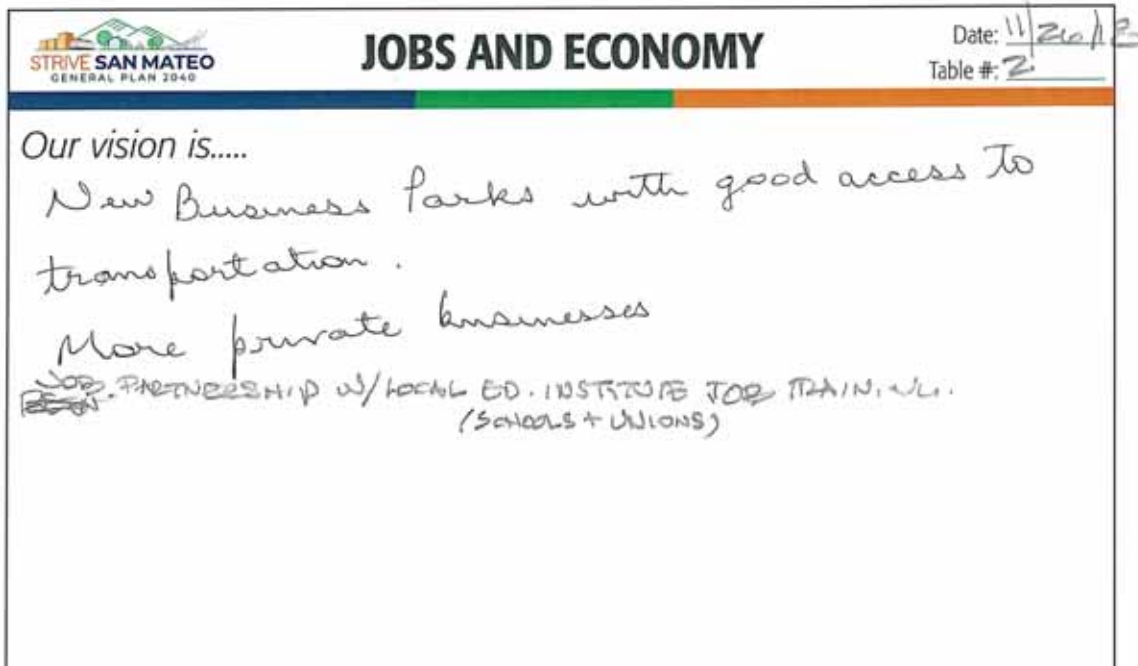 STRIVE SAN MATEO
GENERAL PLAN 2040
JOBS AND ECONOMY
Date: 11/26/18
Table #: 2
Our vision is.....
New Business Parks with good access to
transportation.
More private businesses
JOB. PARTNERSHIP W/LOCAL ED. INSTITUTE JOB TRAINING.
(SCHOOLS + UNIONS)